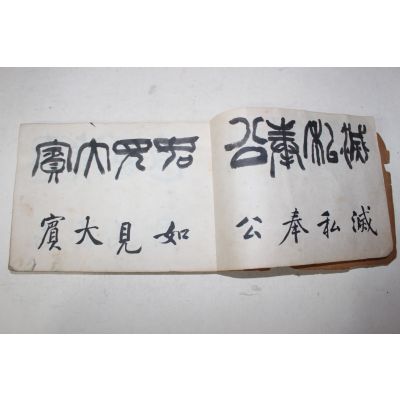 滅私奉公
滅私奉公
如見大賓
如見大賓